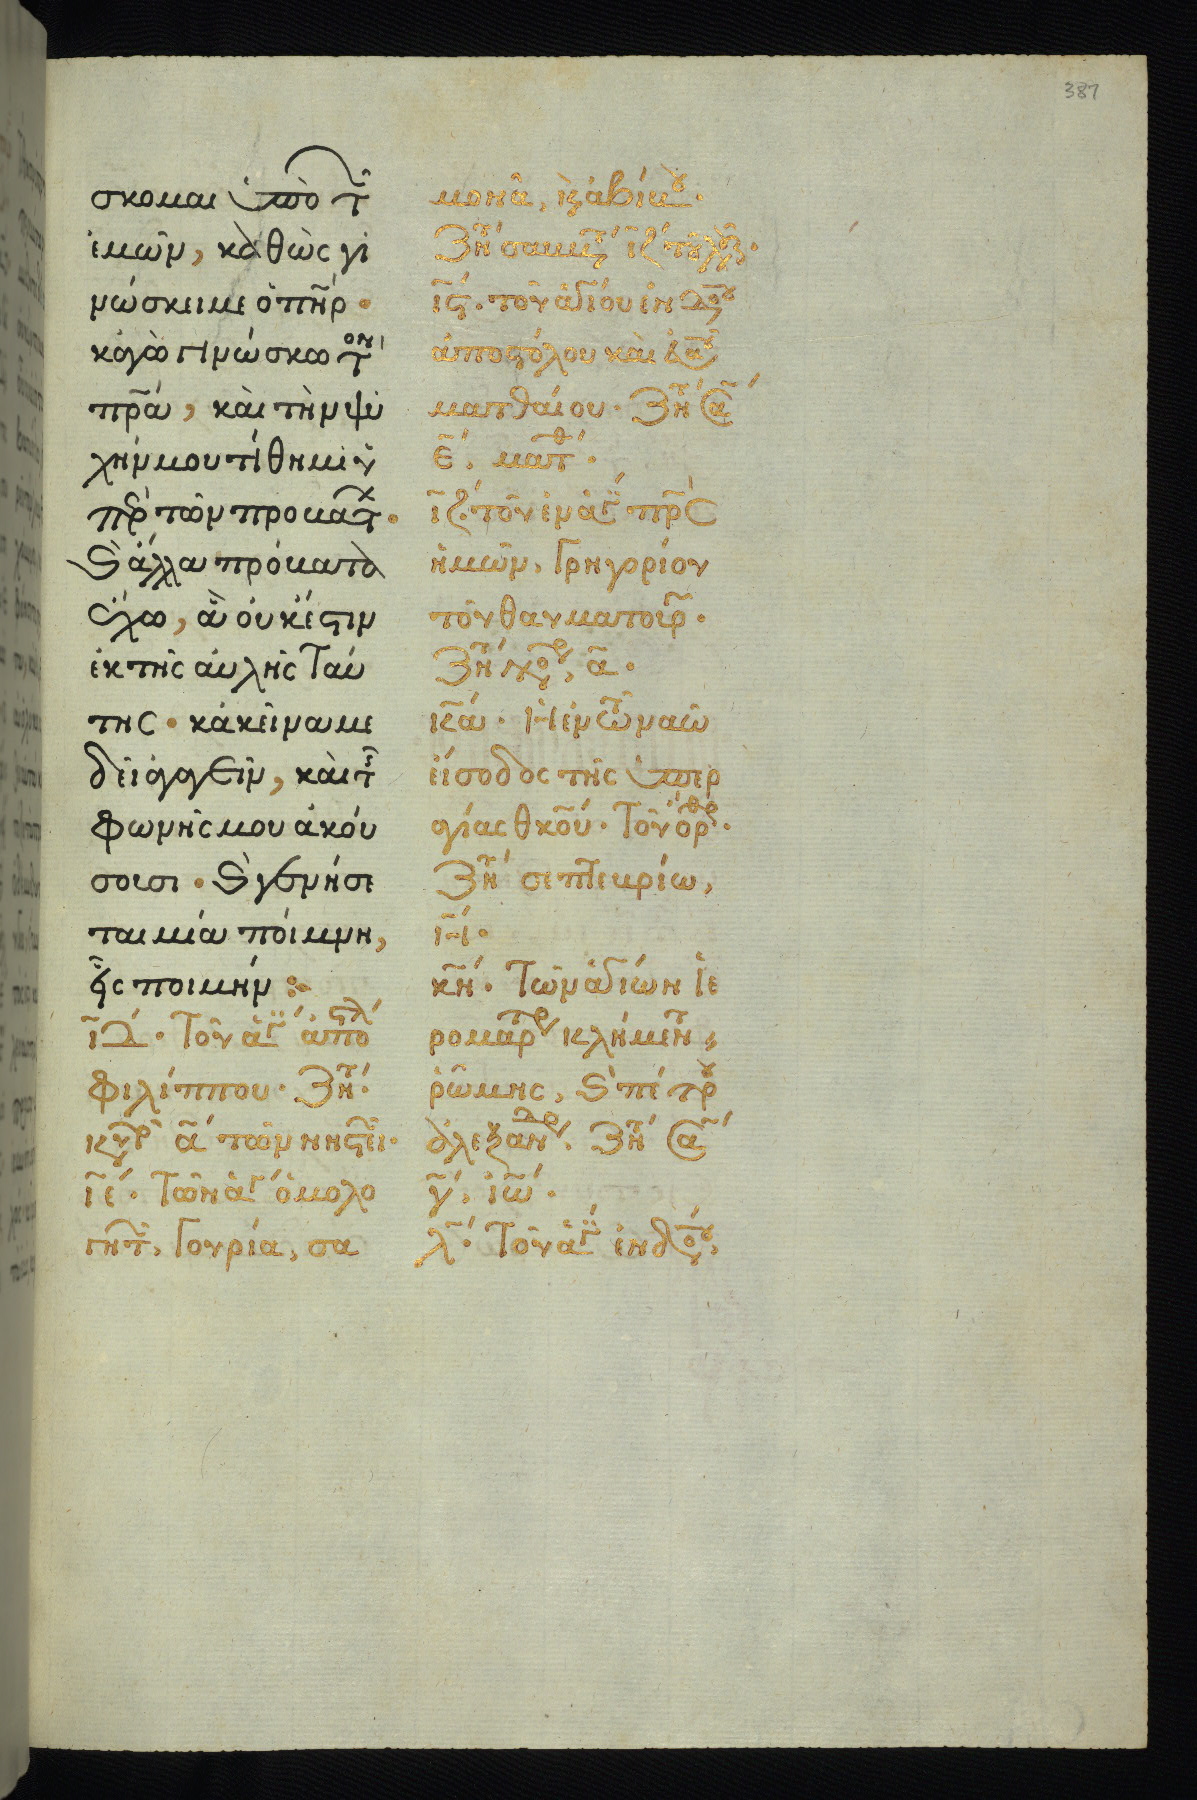 387
σκομαι ὑπὸ τ̑
ἐμῶν, καθὼς γι
νώσκει με ὁ πη̃ρ·
κἀγὼ γινώσκω τον
πρ̃α, καὶ τὴν ψυ
χήν μου τίθημι ὑ
πὲρ τῶν προβάτ·
καὶ ἄλλα πρόβατα
ἔχω, ἃ οὐκ ἔστιν
ἐκ τῆς αὐλῆς ταύ
της· κἀκεῖνα με
δεῖ ἀγαγεῖν, καὶ τ̑
φωνῆς μου ἀκού
σουσι· καὶ γενήσε
ται μία ποίμνη,
εἷς ποιμήν :~
ιδ̃. Τοῦ ἁγ ἀποστλ
φιλίππου. Ζητ.
κυρ α τῶν νηστει.
ιε̃. Τῶν ἁγ ὁμολο
γητ, Γουρία, σα
μονᾶ, κ αβίβου.
Ζητ σεπτ ιζ
ις̃. τοῦ ἁγίου ἐνδοξου
ἀποστόλου καὶ εὐαγ
ματθαίου. Ζητ σα
ε̃, ματθ.
ιζ. τοῦ ἐν ἁγ πρς
ἡμῶν, Γρηγορίου
τοῦ θαυματουρ.
Ζητ κυρ, α.
κα̃. Ἡ ἐν τῶ ναῶ
εἴσοδος τῆς ὑπερ
αγίας θκου. Τοῦ ὀρθρ.
Ζητ σεπτεβρίω,
η̃.
κε̃. Τῶν ἁγίων ἱε
ρομαρτρ κλήμεντ,
ῥώμης, καὶ πέτρου
ἀλεξανδρ. Ζητ σα
γ, ἰω.
λ̃. Τοῦ ἁγ ἐνδοξου,